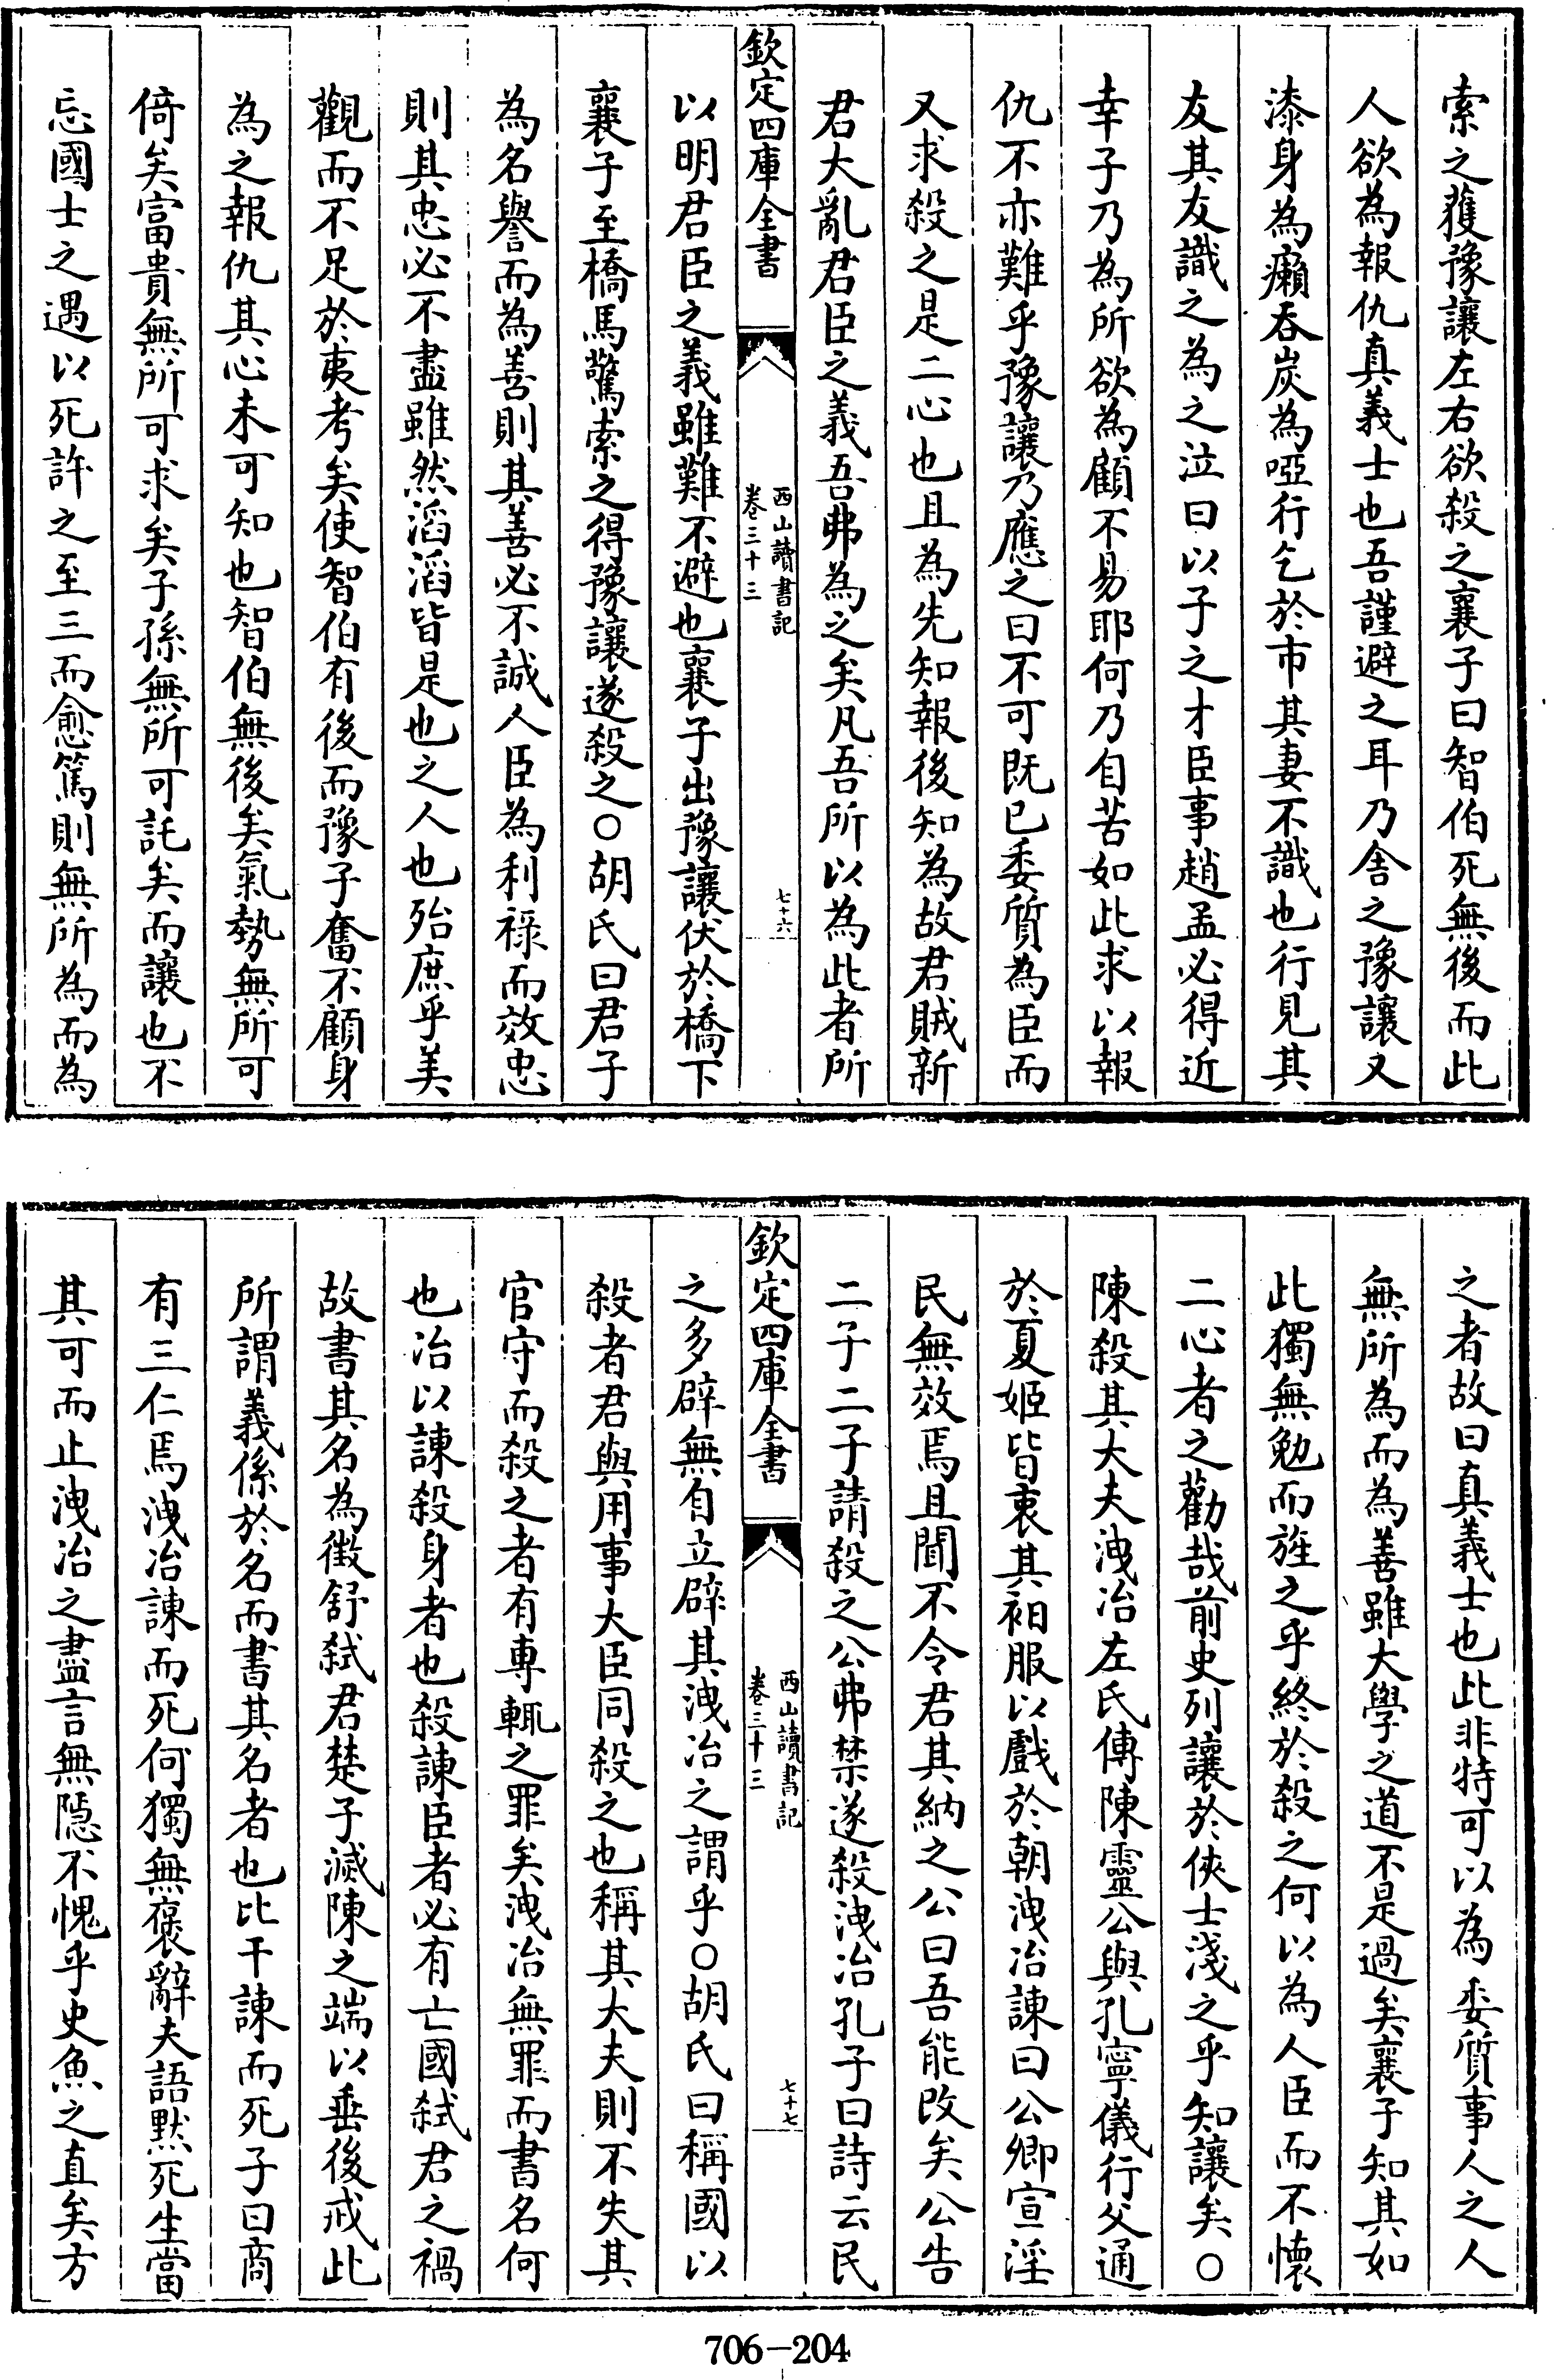 索之獲豫讓左右欲殺之襄子曰智伯死無後而此
人欲為報仇真義士也吾謹避之耳乃舎之豫讓又
漆身為癩吞炭為啞行乞於市其妻不識也行見其
友其友識之為之泣曰以子之才臣事趙孟必得近
幸子乃為所欲為顧不易耶何乃自苦如此求以報
仇不亦難乎豫讓乃應之曰不可既已委質為臣而
又求殺之是二心也且為先知報後知為故君賊新
君大亂君臣之義吾弗為之矣凡吾所以為此者所
欽定四庫全書
西山讀書記
卷三十三
七十六
以明君臣之義雖難不避也襄子出豫讓伏於橋下
襄子至橋馬驚索之得豫讓遂殺之○胡氏曰君子
為名譽而為善則其善必不誠人臣為利祿而效忠
則其忠必不盡雖然滔滔皆是也之人也殆庶乎美
觀而不足於夷考矣使智伯有後而豫子奮不顧身
為之報仇其心未可知也智伯無後矣氣勢無所可
倚矣富貴無所可求矣子孫無所可託矣而讓也不
忘國士之遇以死許之至三而愈篤則無所為而為
之者故曰真義士也此非特可以為委質事人之人
無所為而為善雖大學之道不是過矣襄子知其如
此獨無勉而旌之乎終於殺之何以為人臣而不懷
二心者之勸哉前史列讓於俠士淺之乎知讓矣○
陳殺其大夫洩冶左氏傳陳靈公與孔寧儀行父通
於夏姬皆衷其衵服以戲於朝洩冶諫曰公卿宣淫
民無效焉且聞不令君其納之公曰吾能改矣公告
二子二子請殺之公弗禁遂殺洩冶孔子曰詩云民
欽定四庫全書
西山讀書記
卷三十三
七十七
之多辟無自立辟其洩冶之謂乎○胡氏曰稱國以
殺者君與用事大臣同殺之也稱其大夫則不失其
官守而殺之者有專輒之罪矣洩冶無罪而書名何
也冶以諫殺身者也殺諫臣者必有亡國弑君之禍
故書其名為徵舒弑君楚子滅陳之端以垂後戒此
所謂義係於名而書其名者也比干諫而死子曰商
有三仁焉洩冶諫而死何獨無襃辭夫語默死生當
其可而止洩冶之盡言無隠不愧乎史魚之直矣方
706-204